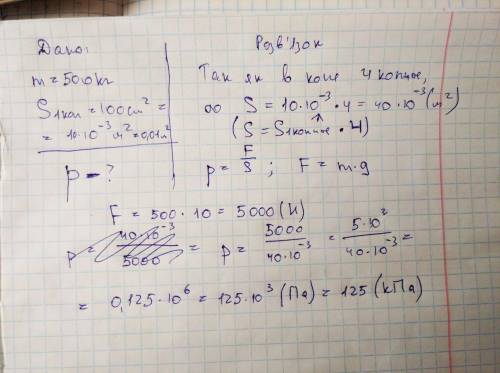 Дано:
m = 500кг
S1коп = 100см² =
= 10·10⁻³м² = 0,01м²
p - ?
Розв'язок
Так як в коне 4 копис,
то S = 10·10⁻³·4 = 40·10⁻³(м²)
(S = S1копис·4)
p = F/S ; F = m·g
F = 500·10 = 5000(Н)
p = 40·10⁻³/5000 = p = 5000/40·10⁻³ = 5·10²/40·10⁻³ =
= 0,125·10⁶ = 125·10³(Па) = 125(кПа)